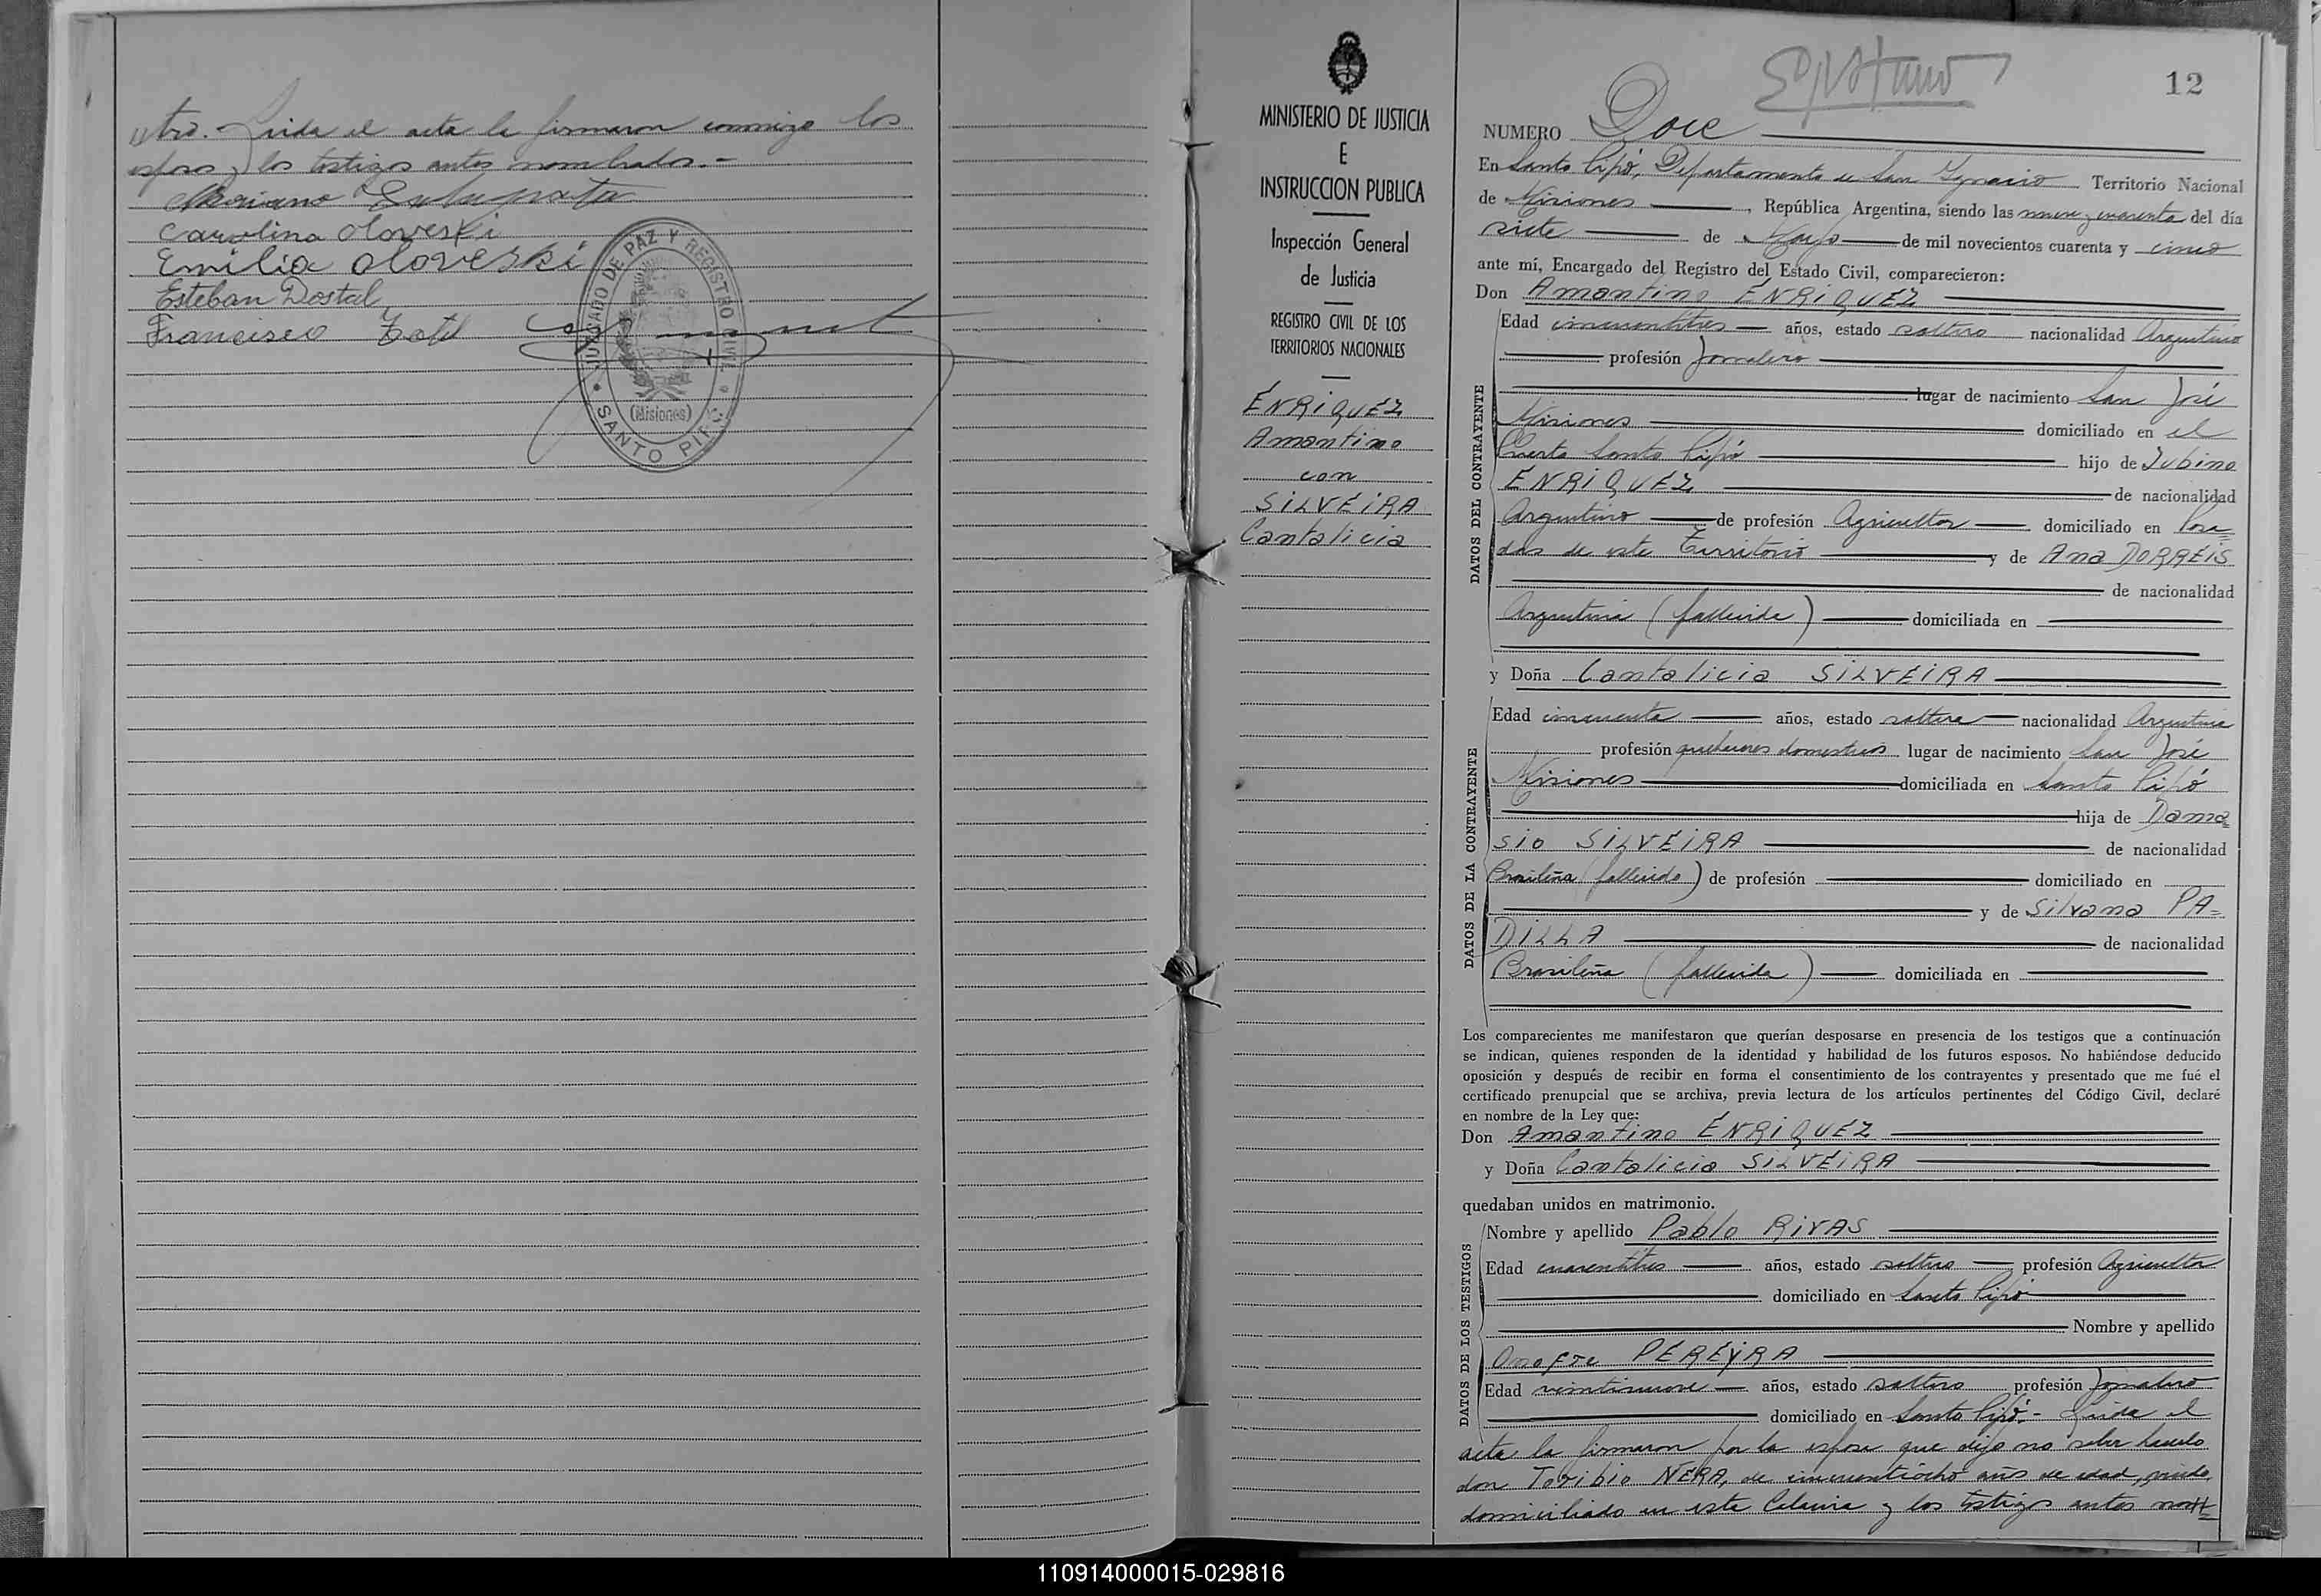 otro.- Leida el acta la firmaron conmigo los
esposos y los testigos antes nombrados.-
Mariano
Carolina Oloveski
Emilia Oloveski
Esteban Dostal
Francisco
JUZGADO DE PAZ Y REGISTRO CIVIL
(Misiones)
SANTO PIPÓ
MINISTERIO DE JUSTICIA
E
INSTRUCCION PUBLICA
Inspección General
de Justicia
REGISTRO CIVIL DE LOS
TERRITORIOS NACIONALES
ENRIQUEZ
Amantino
con
SILVEIRA
Cantalicia
12
NUMERO Doce
En Santo Pipó, Departamento de San Ignacio Territorio Nacional
de Misiones, República Argentina, siendo las nueve y cuarenta del día
siete de Mayo de mil novecientos cuarenta y cinco
ante mí, Encargado del Registro del Estado Civil, comparecieron:
Don Amantino ENRIQUEZ
DATOS DEL CONTRAYENTE
Edad cincuentitres años, estado soltero nacionalidad Argentino
profesión Jornalero
lugar de nacimiento San José
Misiones domiciliado en el
Puerto Santo Pipó hijo de Lubino
ENRIQUEZ de nacionalidad
Argentino de profesión Agricultor domiciliado en Posa=
das de este Territorio y de Ana DORREIS
de nacionalidad
Argentina (fallecida) domiciliada en
y Doña Cantalicia SILVEIRA
DATOS DE LA CONTRAYENTE
Edad cincuenta años, estado soltera nacionalidad Argentina
profesión quehaceres domesticos lugar de nacimiento San José
Misiones domiciliada en Santo Pipó
hija de Dama=
sio SILVEIRA de nacionalidad
Brasileña (fallecido) de profesión domiciliado en
y de Silvana PA=
DILLA de nacionalidad
Brasileña (fallecida) domiciliada en
Los comparecientes me manifestaron que querían desposarse en presencia de los testigos que a continuación
se indican, quienes responden de la identidad y habilidad de los futuros esposos. No habiéndose deducido
oposición y después de recibir en forma el consentimiento de los contrayentes y presentado que me fué el
certificado prenupcial que se archiva, previa lectura de los artículos pertinentes del Código Civil, declaré
en nombre de la Ley que:
Don Amantino ENRIQUEZ
y Doña Cantalicia SILVEIRA
quedaban unidos en matrimonio.
DATOS DE LOS TESTIGOS
Nombre y apellido Pablo RIVAS
Edad cuarentitres años, estado soltero profesión Agricultor
domiciliado en Santo Pipó
Nombre y apellido
Onofre PEREYRA
Edad veintinueve años, estado soltero profesión Jornalero
domiciliado en Santo Pipó.- Leida el
acta la firmaron por la esposa que dijo no saber hacerlo
don Toribio NERA, de cincuentiocho años de edad, viudo,
domiciliado en esta Colonia y los testigos antes nom=
110914000015-029816